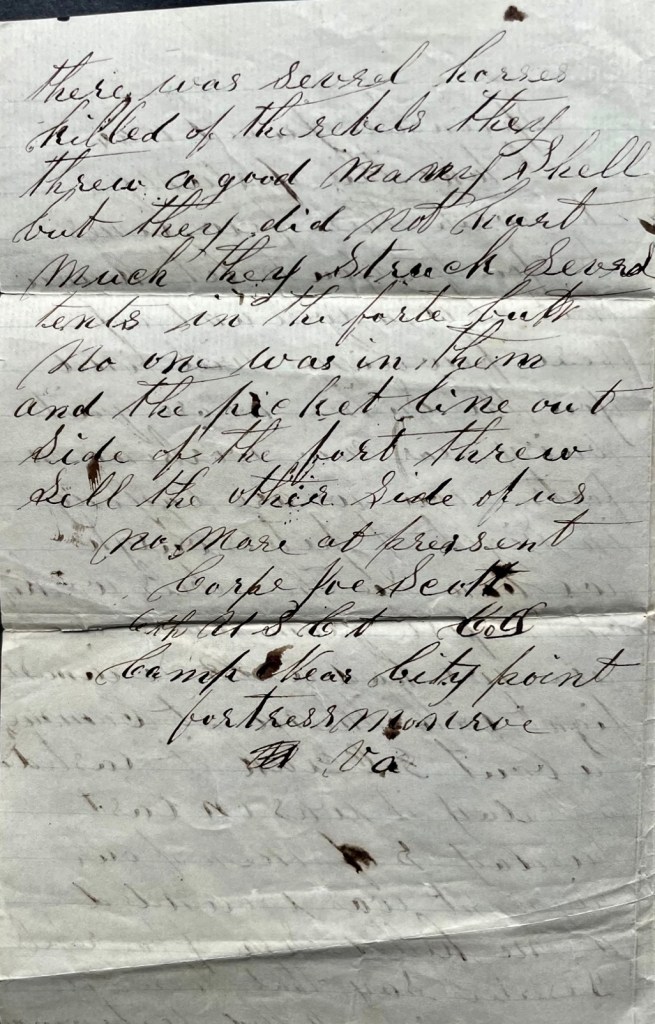 there was sevrel horses
killed of the rebels they
threw a good many shell
but they did not hurt
much they struck sevrel
tents in the forte butt
no one was in them
and the picket line out
side of the fort threw
sell the other side of us
no more at present
Corpe Joe Scott
6th U S C t Co G
Camp Near City point
fortressmonroe
Va